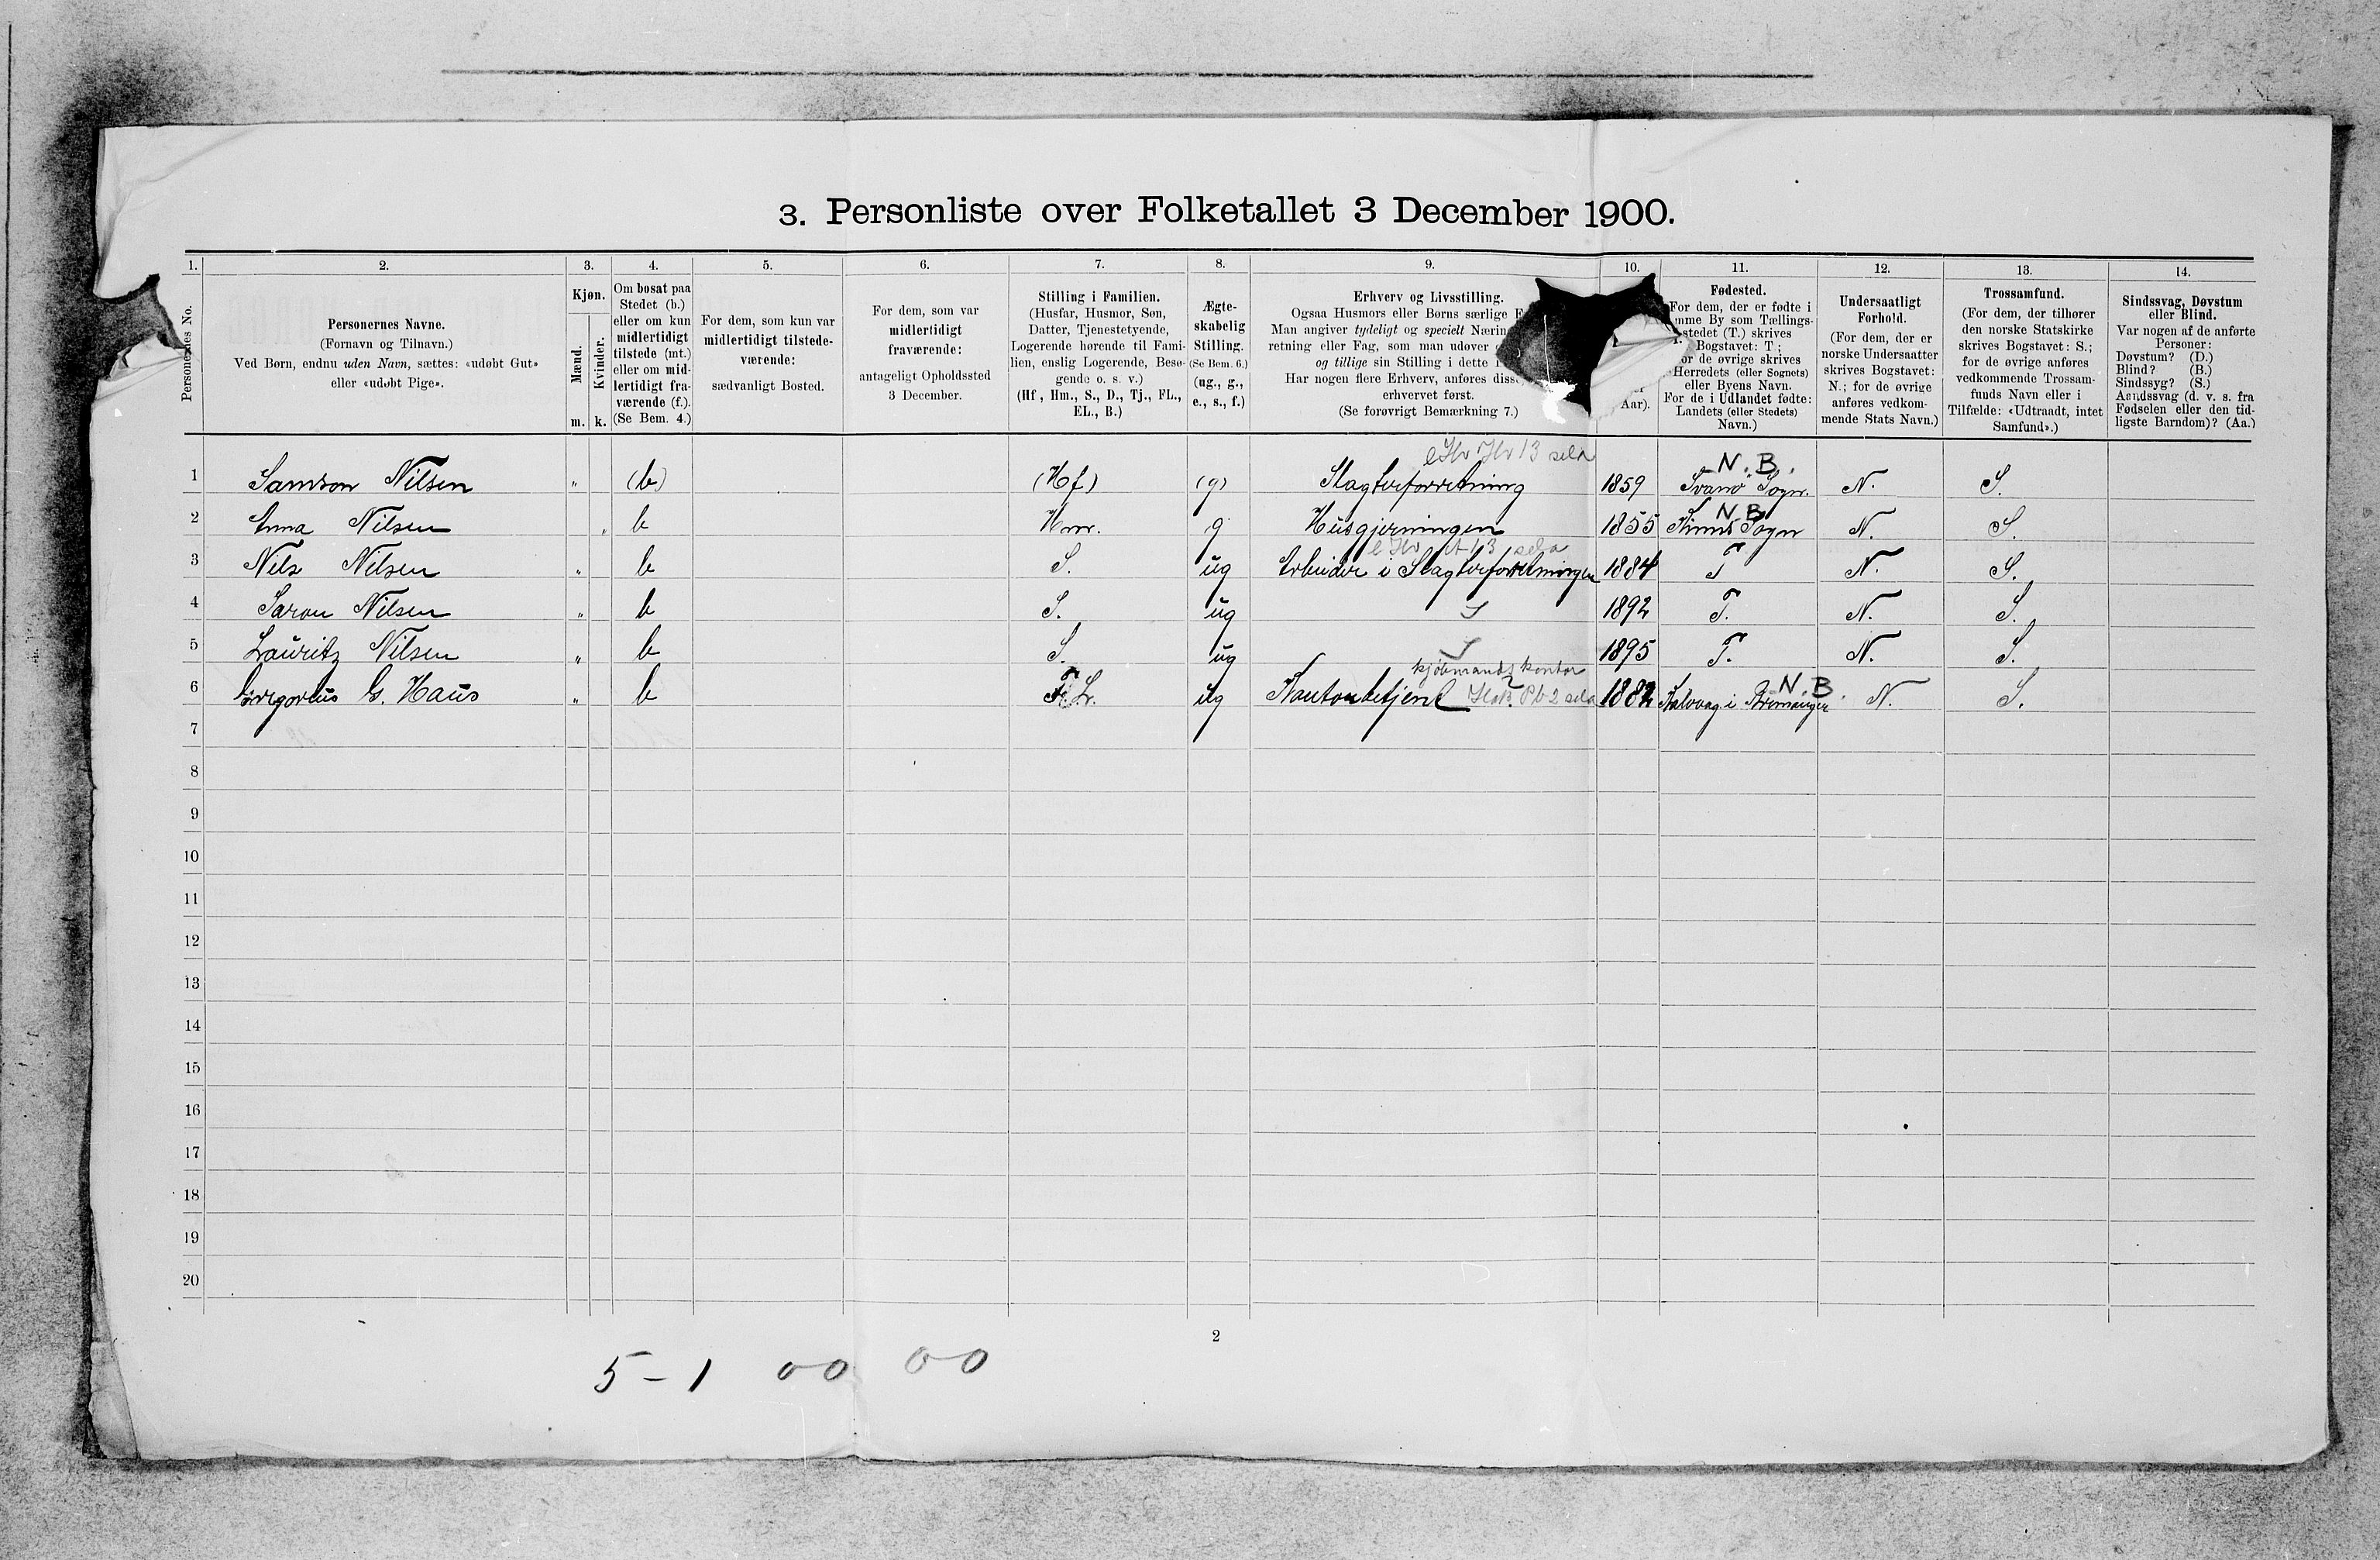 3. Personliste over Folketallet 3 December 1900.
1. 2. 3. 4. 5. 6. 7. 8. 9. 10. 11. 12. 13. 14.
Personernes No.
Personernes Navne.
(Fornavn og Tilnavn.)
Ved Børn, endnu uden Navn, sættes: «udøbt Gut»
eller «udøbt Pige».
Kjøn.
Mænd.
Kvinder.
m. k.
Om bosat paa
Stedet (b.)
eller om kun
midlertidigt
tilstede (mt.)
eller om mid-
lertidigt fra-
værende (f.).
(Se Bem. 4.)
For dem, som kun var
midlertidigt tilstede-
værende:
sædvanligt Bosted.
For dem, som var
midlertidigt
fraværende:
antageligt Opholdssted
3 December.
Stilling i Familien.
(Husfar, Husmor, Søn,
Datter, Tjenestetyende,
Logerende hørende til Fami-
lien, enslig Logerende, Besø-
gende o. s. v.)
(Hf, Hm., S., D., Tj., FL.,
EL., B.)
Ægte-
skabelig
Stilling.
(Se Bem. 6.)
(ug., g.,
e., s., f.)
Erhverv og Livsstilling.
Ogsaa Husmors eller Børns særlige E
Man angiver tydeligt og specielt Nærin
retning eller Fag, som man udøver
og tillige sin Stilling i dette
Har nogen flere Erhverv, anføres diss
erhvervet først.
(Se forøvrigt Bemærkning 7.)
Aar).
Fødested.
For dem, der er fødte i
mme By som Tællings-
stedet (T.) skrives
Bogstavet: T.;
or de øvrige skrives
Herredets (eller Sognets)
eller Byens Navn.
For de i Udlandet fødte:
Landets (eller Stedets)
Navn.)
Undersaatligt
Forhold.
(For dem, der er
norske Undersaatter
skrives Bogstavet:
N.; for de øvrige
anføres vedkom-
mende Stats Navn.)
Trossamfund.
(For dem, der tilhører
den norske Statskirke
skrives Bogstavet: S.;
for de øvrige anføres
vedkommende Trossam-
funds Navn eller i
Tilfælde: «Udtraadt, intet
Samfund».)
Sindssvag, Døvstum
eller Blind.
Var nogen af de anførte
Personer:
Døvstum? (D.)
Blind? (B.)
Sindssyg? (S.)
Aandssvag (d. v. s. fra
Fødselen eller den tid-
ligste Barndom)? (Aa.)
N. B.
1 Samson Nilsen " (b) (Hf) (g) Slagterforretning 1859 Svanø Sogn. N. S.
N B
2 Anna Nilsen " b Hm. g Husgjerningen 1855 Kinns Sogn N. S.
3 Nils Nilsen " b S. ug Arbeider i Slagterforretningen 1884 T N. S.
4 Saron Nilsen " b S. ug 1892 T. N. S.
5 Lauritz Nilsen " b S. ug 1895 T. N. S.
kjøbmands kontor
N. B.
6 Gregorius G. Haus " b F. L. ug Kontorbetjent 1882 Kalvaag i Bremanger N. S.
7
8
9
10
11
12
13
14
15
16
17
18
19
20
2
5 - 1 0 0 0 0